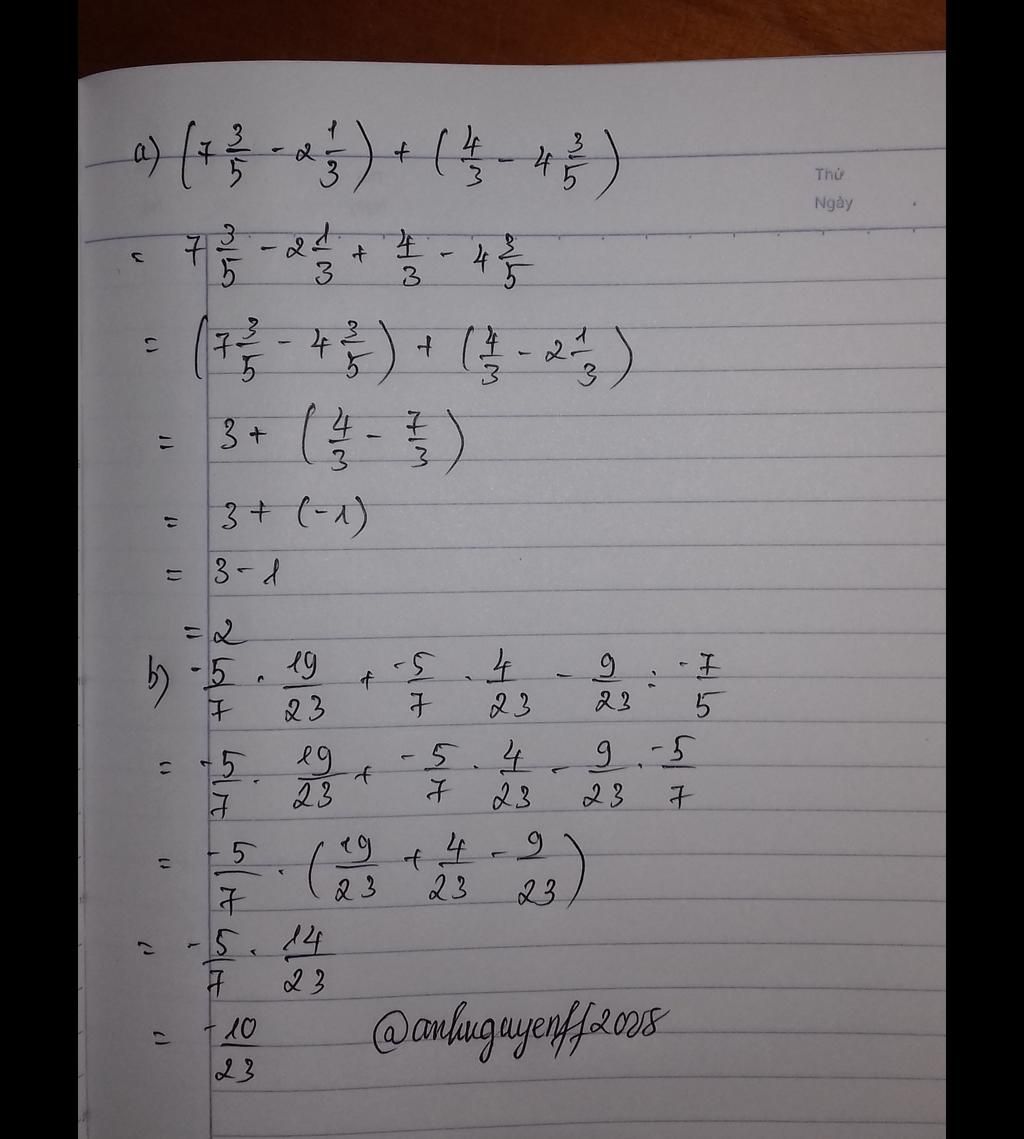 a) (7 3/5 - 2 1/3) + (4/3 - 4 3/5)
Thứ
Ngày
= 7 3/5 - 2 1/3 + 4/3 - 4 3/5
= (7 3/5 - 4 3/5) + (4/3 - 2 1/3)
= 3 + (4/3 - 7/3)
= 3 + (-1)
= 3 - 1
= 2
b) -5/7 . 19/23 + -5/7 . 4/23 - 9/23 : -7/5
= -5/7 . 19/23 + -5/7 . 4/23 - 9/23 . -5/7
= -5/7 . (19/23 + 4/23 - 9/23)
= -5/7 . 14/23
= -10/23